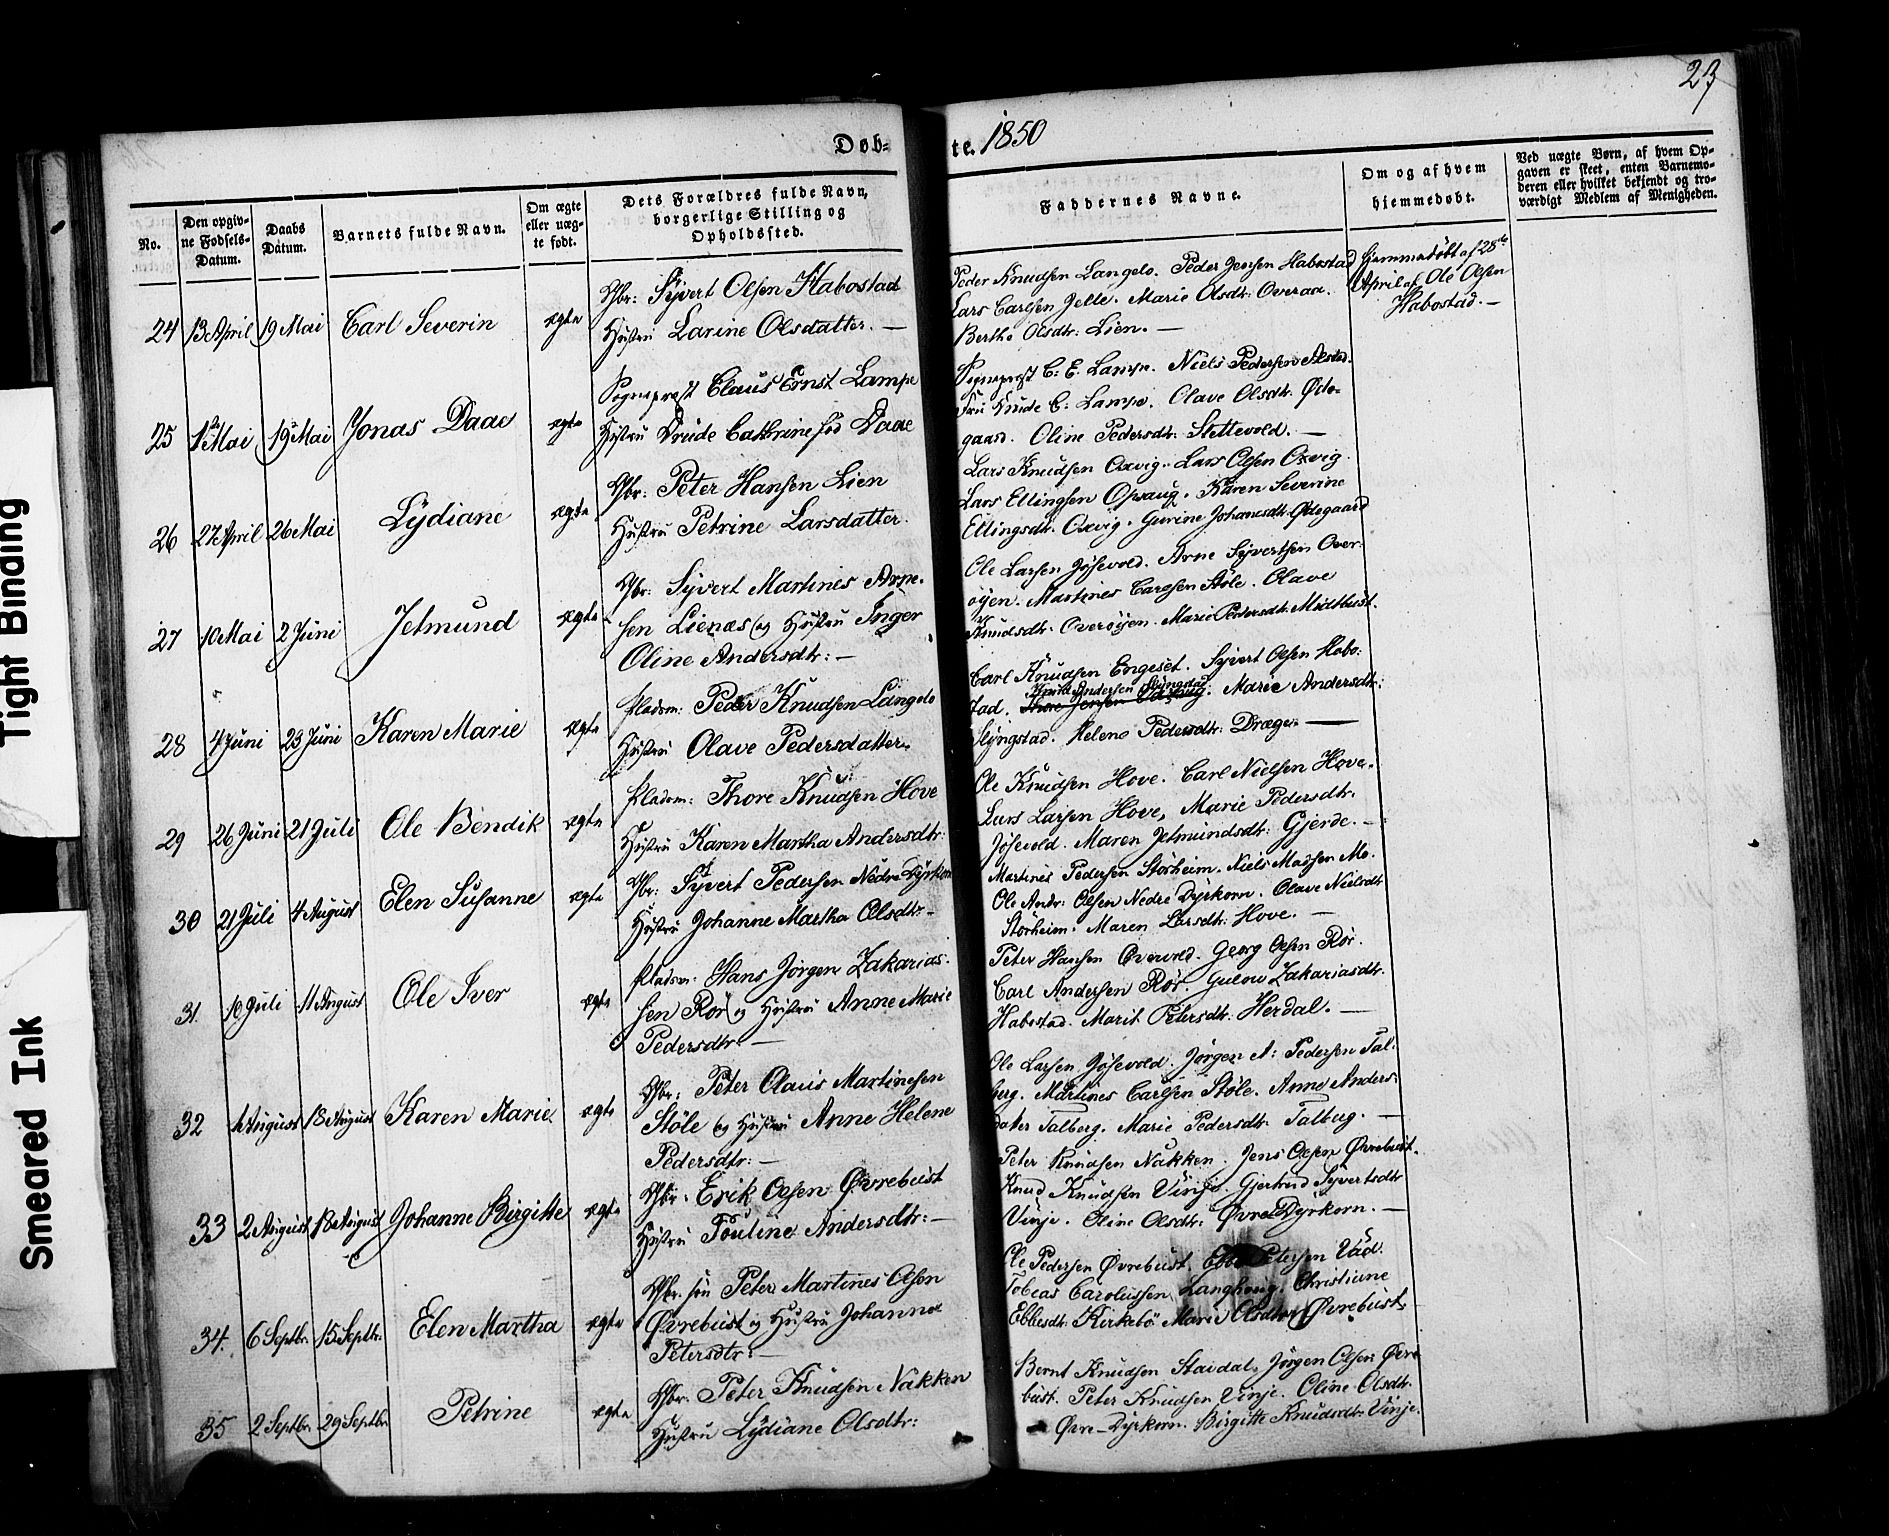 23
Døb=
te. 1850
No.
Den opgiv-
ne Fødsels-
Datum.
Daabs
Datum.
Barnets fulde Navn.
Om ægte
eller uæg-
te født.
Dets Forældres fulde Navn,
borgerlige Stilling og
Opholdssted.
Faddernes Navne.
Om og af hvem
hjemmedøbt.
Ved uægte Børn, af hvem Op-
gaven er skeet, enten Barnemo-
deren eller hvilket bekjendt og tro-
værdigt Medlem af Menigheden.
24 13 April 19 Mai Carl Severin ægte
Gbr: Syvert Olsen Habostad
Hustru Larine Olsdatter. —
Peder Knudsen Langelo. Peder Jensen Habostad
Lars Carlsen Jelle. Marie Olsdtr: Overaa.
Berthe Olsdtr: Lien. —
Hjemmedøbt af 28de
April af Ole Olsen
Habostad. —
25 1ste Mai 19 Mai Jonas Daae ægte
Sogneprest Claus Ernst Lampe
Hustru Drude Cathrine fød Daae
Sogneprest C: E. Lampe. Niels Pedersen
Fru C: Lampe. Olave Olsdtr: Øde-
gaard. Oline Pedersdtr: Slettevold. —
26 27 April 26 Mai Lydiane ægte
Gbr: Peter Hansen Lien
Hustru Petrine Larsdatter.
Lars Knudsen Oxvig. Lars Olsen Oxvig.
Lars Ellingsen Opsaug. Karen Severine
Ellingsdtr: Oxvig. Gurine Johansdtr: Ødegaard
27 10 Mai 2 Juni Jetmund ægte
Gbr: Syvert Martines Arne-
sen Lienæs og Hustru Inger
Oline Andersdtr: —
Ole Larsen Jøsevold. Arne Syvertsen Over-
øyen. Martines Carlsen Støle. Olave
Knudsdtr: Overøyen. Marie Pedersdtr: Midtbust.
28 4 Juni 23 Juni Karen Marie ægte
Pladsm: Peder Knudsen Langelo
Hustru Olave Pedersdatter.
Carl Knudsen Engeset. Syvert Olsen Habo-
Knud Andersen Slyngstad
tad. Thore Jensen. Marie Andersdtr:
Slyngstad. Helene Pedersdtr: Dræge. —
29 26 Juni 21 Juli Ole Bendik ægte
Pladsm: Thore Knudsen Hove
Hustru Karen Martha Andersdtr:
Ole Knudsen Hove. Carl Nielsen Hove.
Lars Larsen Hove, Marie Pedersdtr.
Jøsevold. Maren Jetmundsdtr: Gjerde. —
30 21 Juli 4 August Elen Susanne ægte
Gbr: Syvert Pedersen Nedre Dyrkorn
Hustru Johanne Martha Olsdtr: —
Martines Pedersen Storheim. Niels Madsen Mo.
Ole Andr: Olsen Nedre Dyrkorn. Olave Nielsdtr
Storheim. Maren Larsdtr: Hove. —
31. 10 Juli 11 August Ole Iver ægte
Pladsm: Hans Jørgen Zakarias-
sen Rør og Hustru Anne Marie
Pedersdtr: —
Peter Hansen Overvold. Georg Olsen Rør.
Carl Andersen Rør. Gulow Zakariasdtr.
Habostad. Marit Petersdtr: Herdal. —
32 1 August 18 August Karen Marie ægte
Gbr: Peter Olaus Martinesen
Støle og Hustru Anne Helene
Pedersdtr: —
Ole Larsen Jøsevold. Jørgen A: Pedersen Tal-
berg. Martines Carlsen Støle. Anne Anders-
datter Talberg. Marie Pedersdtr: Talberg. —
33 2 August 18 August Johanne Birgitte ægte
Gbr: Erik Olsen Øvrebust
Hustru Pouline Andersdtr: —
Peter Knudsen Nakken. Jens Olsen Øvrebust.
Knud Knudsen Vinje. Gjertrud Syvertsdtr
Vinje. Oline Olsdtr: Øvre Dyrkorn. —
34. 6 Septbr. 15 Septbr. Elen Martha ægte
Gbr. søn Peter Martines Olsen
Øvrebust og Hustru Johanne
Petersdtr: —
Ole Pedersen Øvrebust. Petersen Vad.
Tobias Carolussen Langhaug. Christiane
Ebbesdtr: Kirkebø Marie Olsdtr: Øvrebust.
35 2 Septbr. 29 Septbr. Petrine ægte
Gbr. Peter Knudsen Nakken
Hustru Lydiane Olsdtr:
Bernt Knudsen Stavdal. Jørgen Olsen Øvre
bust. Peter Knudsen Vinje. Oline Olsdtr.
Øvre-Dyrkorn. Birgitte Knudsdtr: Vinje.
Tight Binding
Smeared Ink